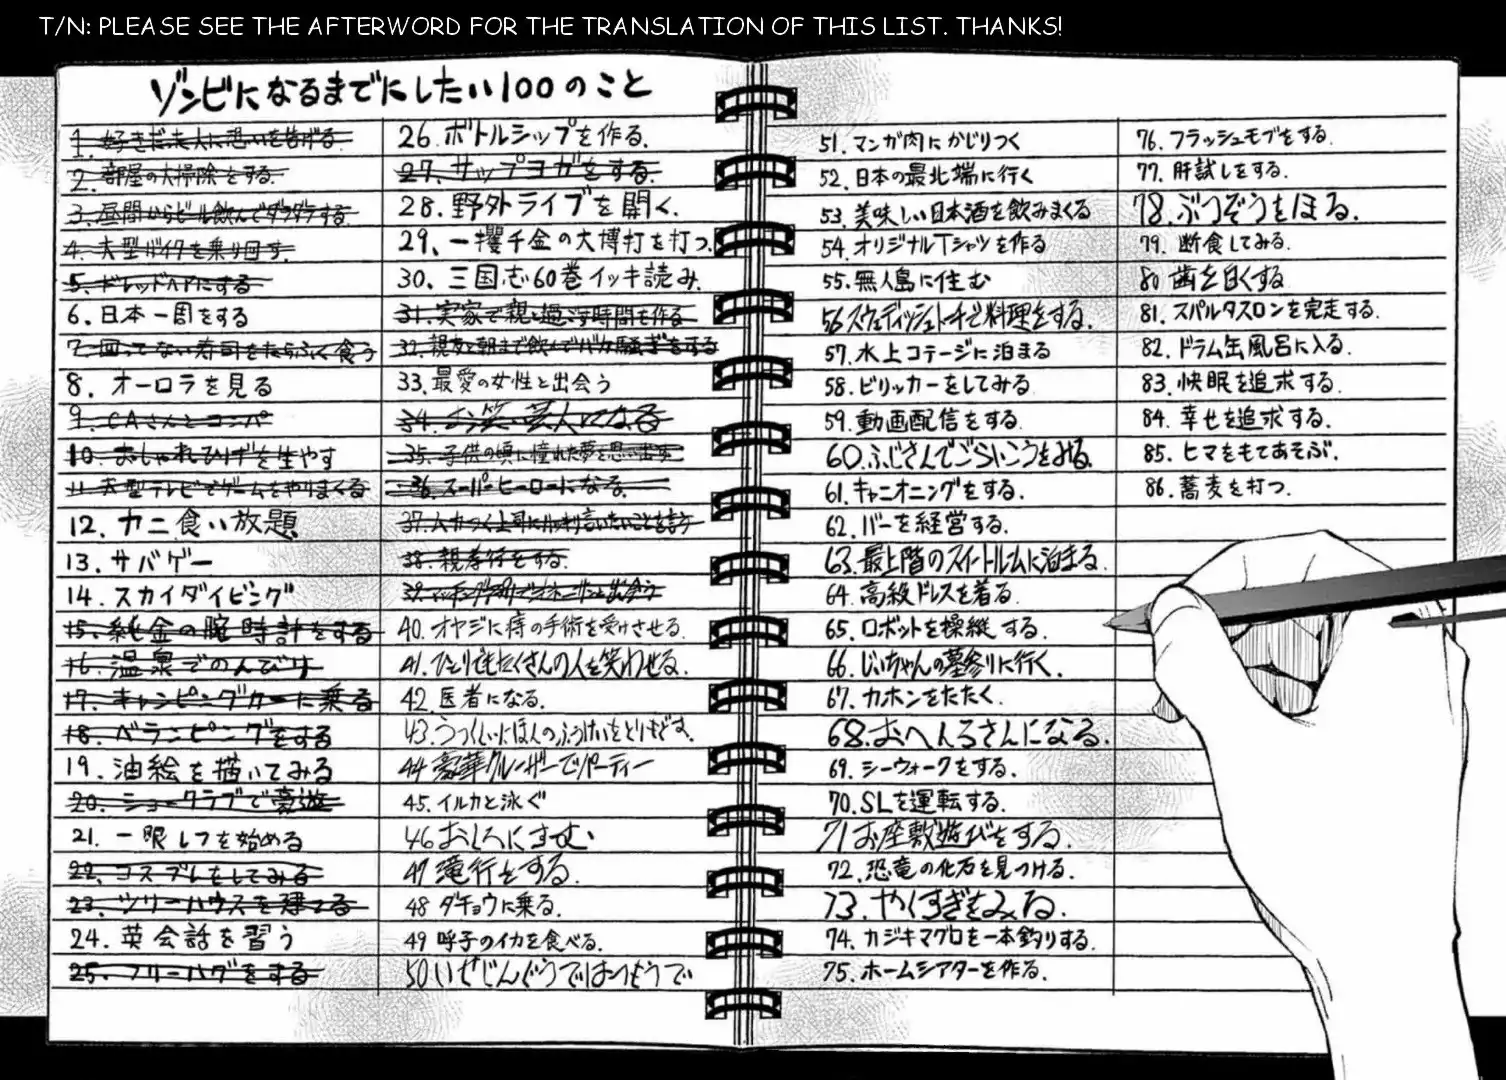 T/N: PLEASE SEE THE AFTERWORD FOR THE TRANSLATION OF THIS LIST. THANKS!
ゾンビになるまでにしたい100のこと
1. 好きだった人に想いを告げる
2. 部屋の大掃除をする.
3. 昼間からビール飲んでダラダラする
4. 大型バイクを乗り回す.
5. ドレッドヘアにする
6. 日本一周をする
7. 回ってない寿司をたらふく食う
8. オーロラを見る
9. CAさんとコンパ
10. おしゃれひげを生やす
11. 大型テレビでゲームをやりまくる
12. カニ食い放題
13. サバゲー
14. スカイダイビング
15. 純金の腕時計をする
16. 温泉でのんびり
17. キャンピングカーに乗る
18. ベランピングをする
19. 油絵を描いてみる
20. ショークラブで豪遊
21. 一眼レフを始める
22. コスプレをしてみる
23. ツリーハウスを建てる
24. 英会話を習う
25. フリーハグをする
26. ボトルシップを作る.
27. サップヨガをする.
28. 野外ライブを開く.
29. 一攫千金の大博打を打つ.
30. 三国志60巻イッキ読み.
31. 実家で親と過ごす時間を作る
32. 親友と朝まで飲んでバカ騒ぎをする
33. 最愛の女性と出会う
34. お笑い芸人になる
35. 子供の頃に憧れた夢を思い出す
36. スーパーヒーローになる.
37. ムカつく上司にハッキリ言いたいことを言う
38. 親孝行をする.
39. マッチングアプリで
40. オヤジに痔の手術を受けさせる.
41. ひとりでもたくさんの人を笑わせる.
42. 医者になる.
43. うつくしいにほんのふうけいをとりもどす.
44 豪華クルーザーでパーティー
45. イルカと泳ぐ
46 おしろにすむ
47 滝行をする.
48 ダチョウに乗る.
49 呼子のイカを食べる.
50 いせじんぐうではつもうで
51. マンガ肉にかじりつく
52. 日本の最北端に行く
53. 美味しい日本酒を飲みまくる
54. オリジナルTシャツを作る
55. 無人島に住む
56 スウェディッシュトーチで料理をする.
57. 水上コテージに泊まる
58. ビリッカーをしてみる
59. 動画配信をする.
60. ふじさんでごらいこうをみる.
61. キャニオニングをする.
62. バーを経営する.
63. 最上階のスイートルームに泊まる.
64. 高級ドレスを着る.
65. ロボットを操縦する.
66. じいちゃんの墓参りに行く.
67. カホンをたたく.
68. おへんろさんになる.
69. シーウォークをする.
70. SLを運転する.
71 お座敷遊びをする.
72. 恐竜の化石を見つける.
73. やくすぎをみる.
74. カジキマグロを一本釣りする.
75. ホームシアターを作る.
76. フラッシュモブをする.
77. 肝試しをする.
78. ぶつぞうをほる.
79. 断食してみる.
80 歯を白くする
81. スパルタスロンを完走する.
82. ドラム缶風呂に入る.
83. 快眠を追求する.
84. 幸せを追求する.
85. ヒマをもてあそぶ.
86. 蕎麦を打つ.